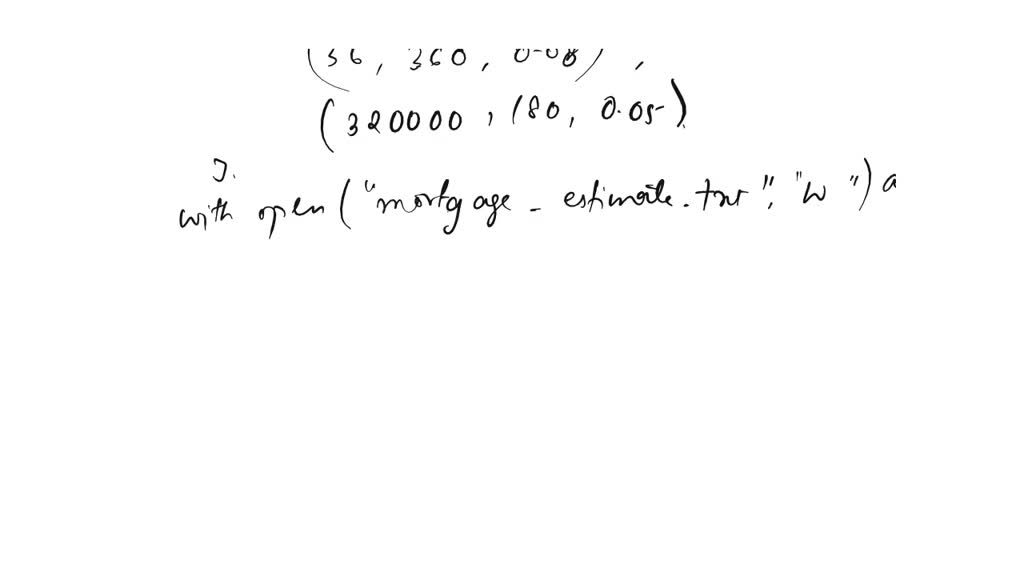 (36, 360, 0.08),
(320000, 180, 0.05)
].
with open("mortgage_estimate.txt", "w") a